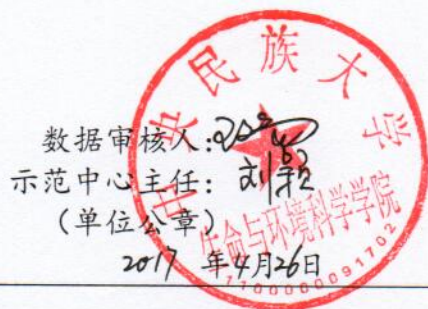 中央民族大学
数据审核人:
示范中心主任: 刘颖
(单位公章)
生命与环境科学学院
2017 年4月26日
1100000091702